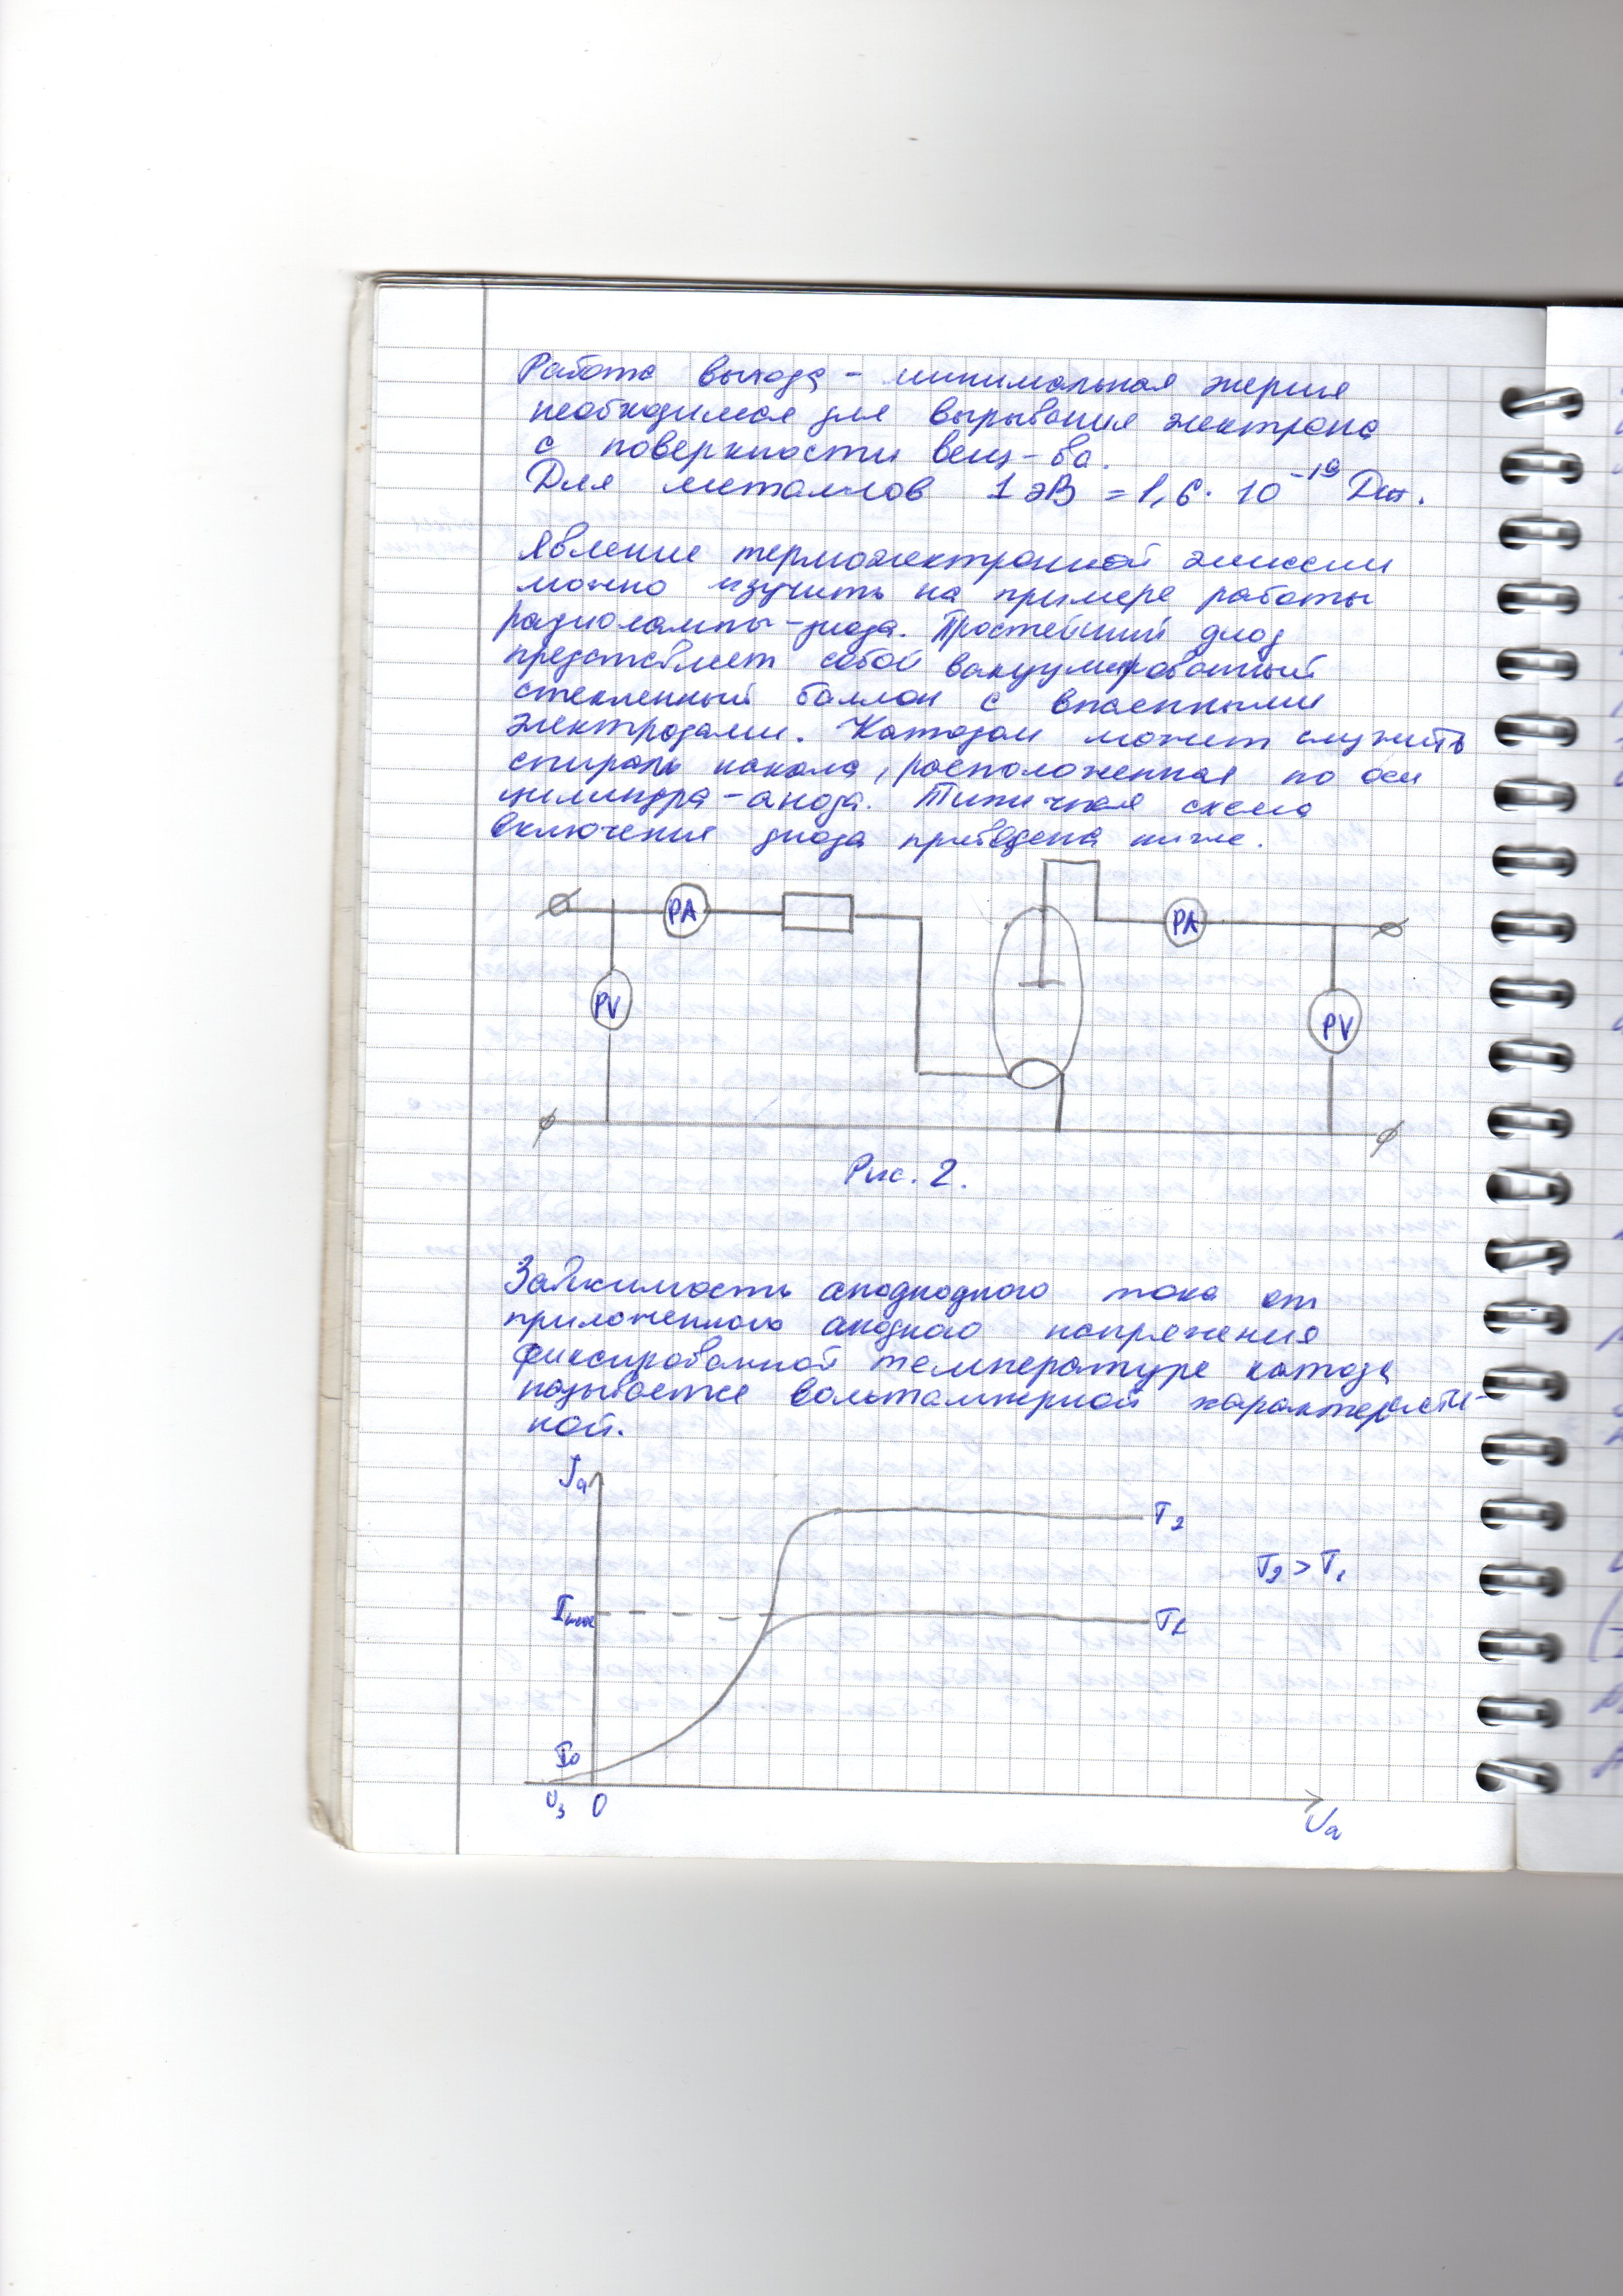 Работа выхода - минимальная энергия
необходимая для вырывания электрона
с поверхности вещ-ва.
Для металлов 1 эВ = 1,6 · 10⁻¹⁹ Дж.
Явление термоэлектронной эмиссии
можно изучить на примере работы
радиолампы-диода. Простейший диод
представляет собой вакуумированный
стеклянный баллон с впаенными
электродами. Катодом может служить
спираль накала, расположенная по оси
цилиндра-анода. Типичная схема
включения диода приведена ниже.
PA PA
PV PV
Рис. 2.
Зависимость анодного тока от
приложенного анодного напряжения
фиксированной температуре катода
называется вольтамперной характеристи-
кой.
Iа
T₂
T₂ > T₁
Imax T₁
I₀
U₃ 0
Uа